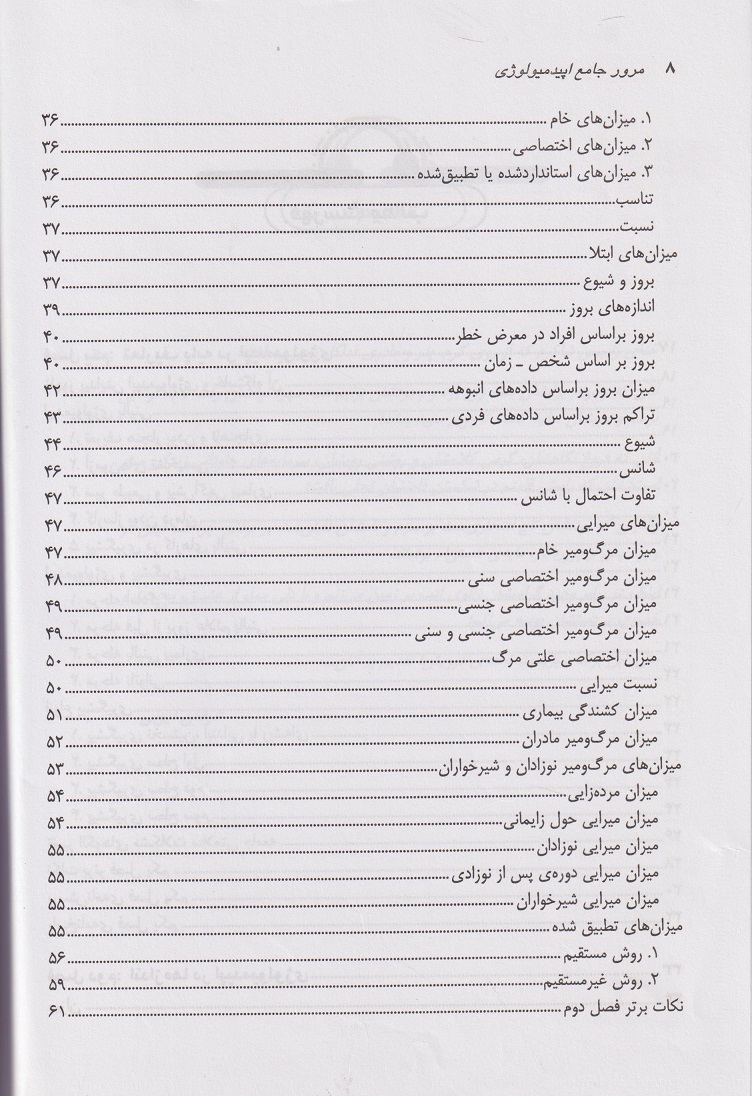 ۸ مرور جامع اپیدمیولوژی
۱. میزان‌های خام ۳۶
۲. میزان‌های اختصاصی ۳۶
۳. میزان‌های استانداردشده یا تطبیق‌شده ۳۶
تناسب ۳۶
نسبت ۳۷
میزان‌های ابتلا ۳۷
بروز و شیوع ۳۷
اندازه‌های بروز ۳۹
بروز براساس افراد در معرض خطر ۴۰
بروز بر اساس شخص ـ زمان ۴۰
میزان بروز براساس داده‌های انبوهه ۴۲
تراکم بروز براساس داده‌های فردی ۴۳
شیوع ۴۴
شانس ۴۶
تفاوت احتمال با شانس ۴۷
میزان‌های میرایی ۴۷
میزان مرگ‌ومیر خام ۴۷
میزان مرگ‌ومیر اختصاصی سنی ۴۸
میزان مرگ‌ومیر اختصاصی جنسی ۴۹
میزان مرگ‌ومیر اختصاصی جنسی و سنی ۴۹
میزان اختصاصی علتی مرگ ۵۰
نسبت میرایی ۵۰
میزان کشندگی بیماری ۵۱
میزان مرگ‌ومیر مادران ۵۲
میزان‌های مرگ‌ومیر نوزادان و شیرخواران ۵۳
میزان مرده‌زایی ۵۴
میزان میرایی حول زایمانی ۵۴
میزان میرایی نوزادان ۵۵
میزان میرایی دوره‌ی پس از نوزادی ۵۵
میزان میرایی شیرخواران ۵۵
میزان‌های تطبیق شده ۵۵
۱. روش مستقیم ۵۶
۲. روش غیرمستقیم ۵۹
نکات برتر فصل دوم ۶۱